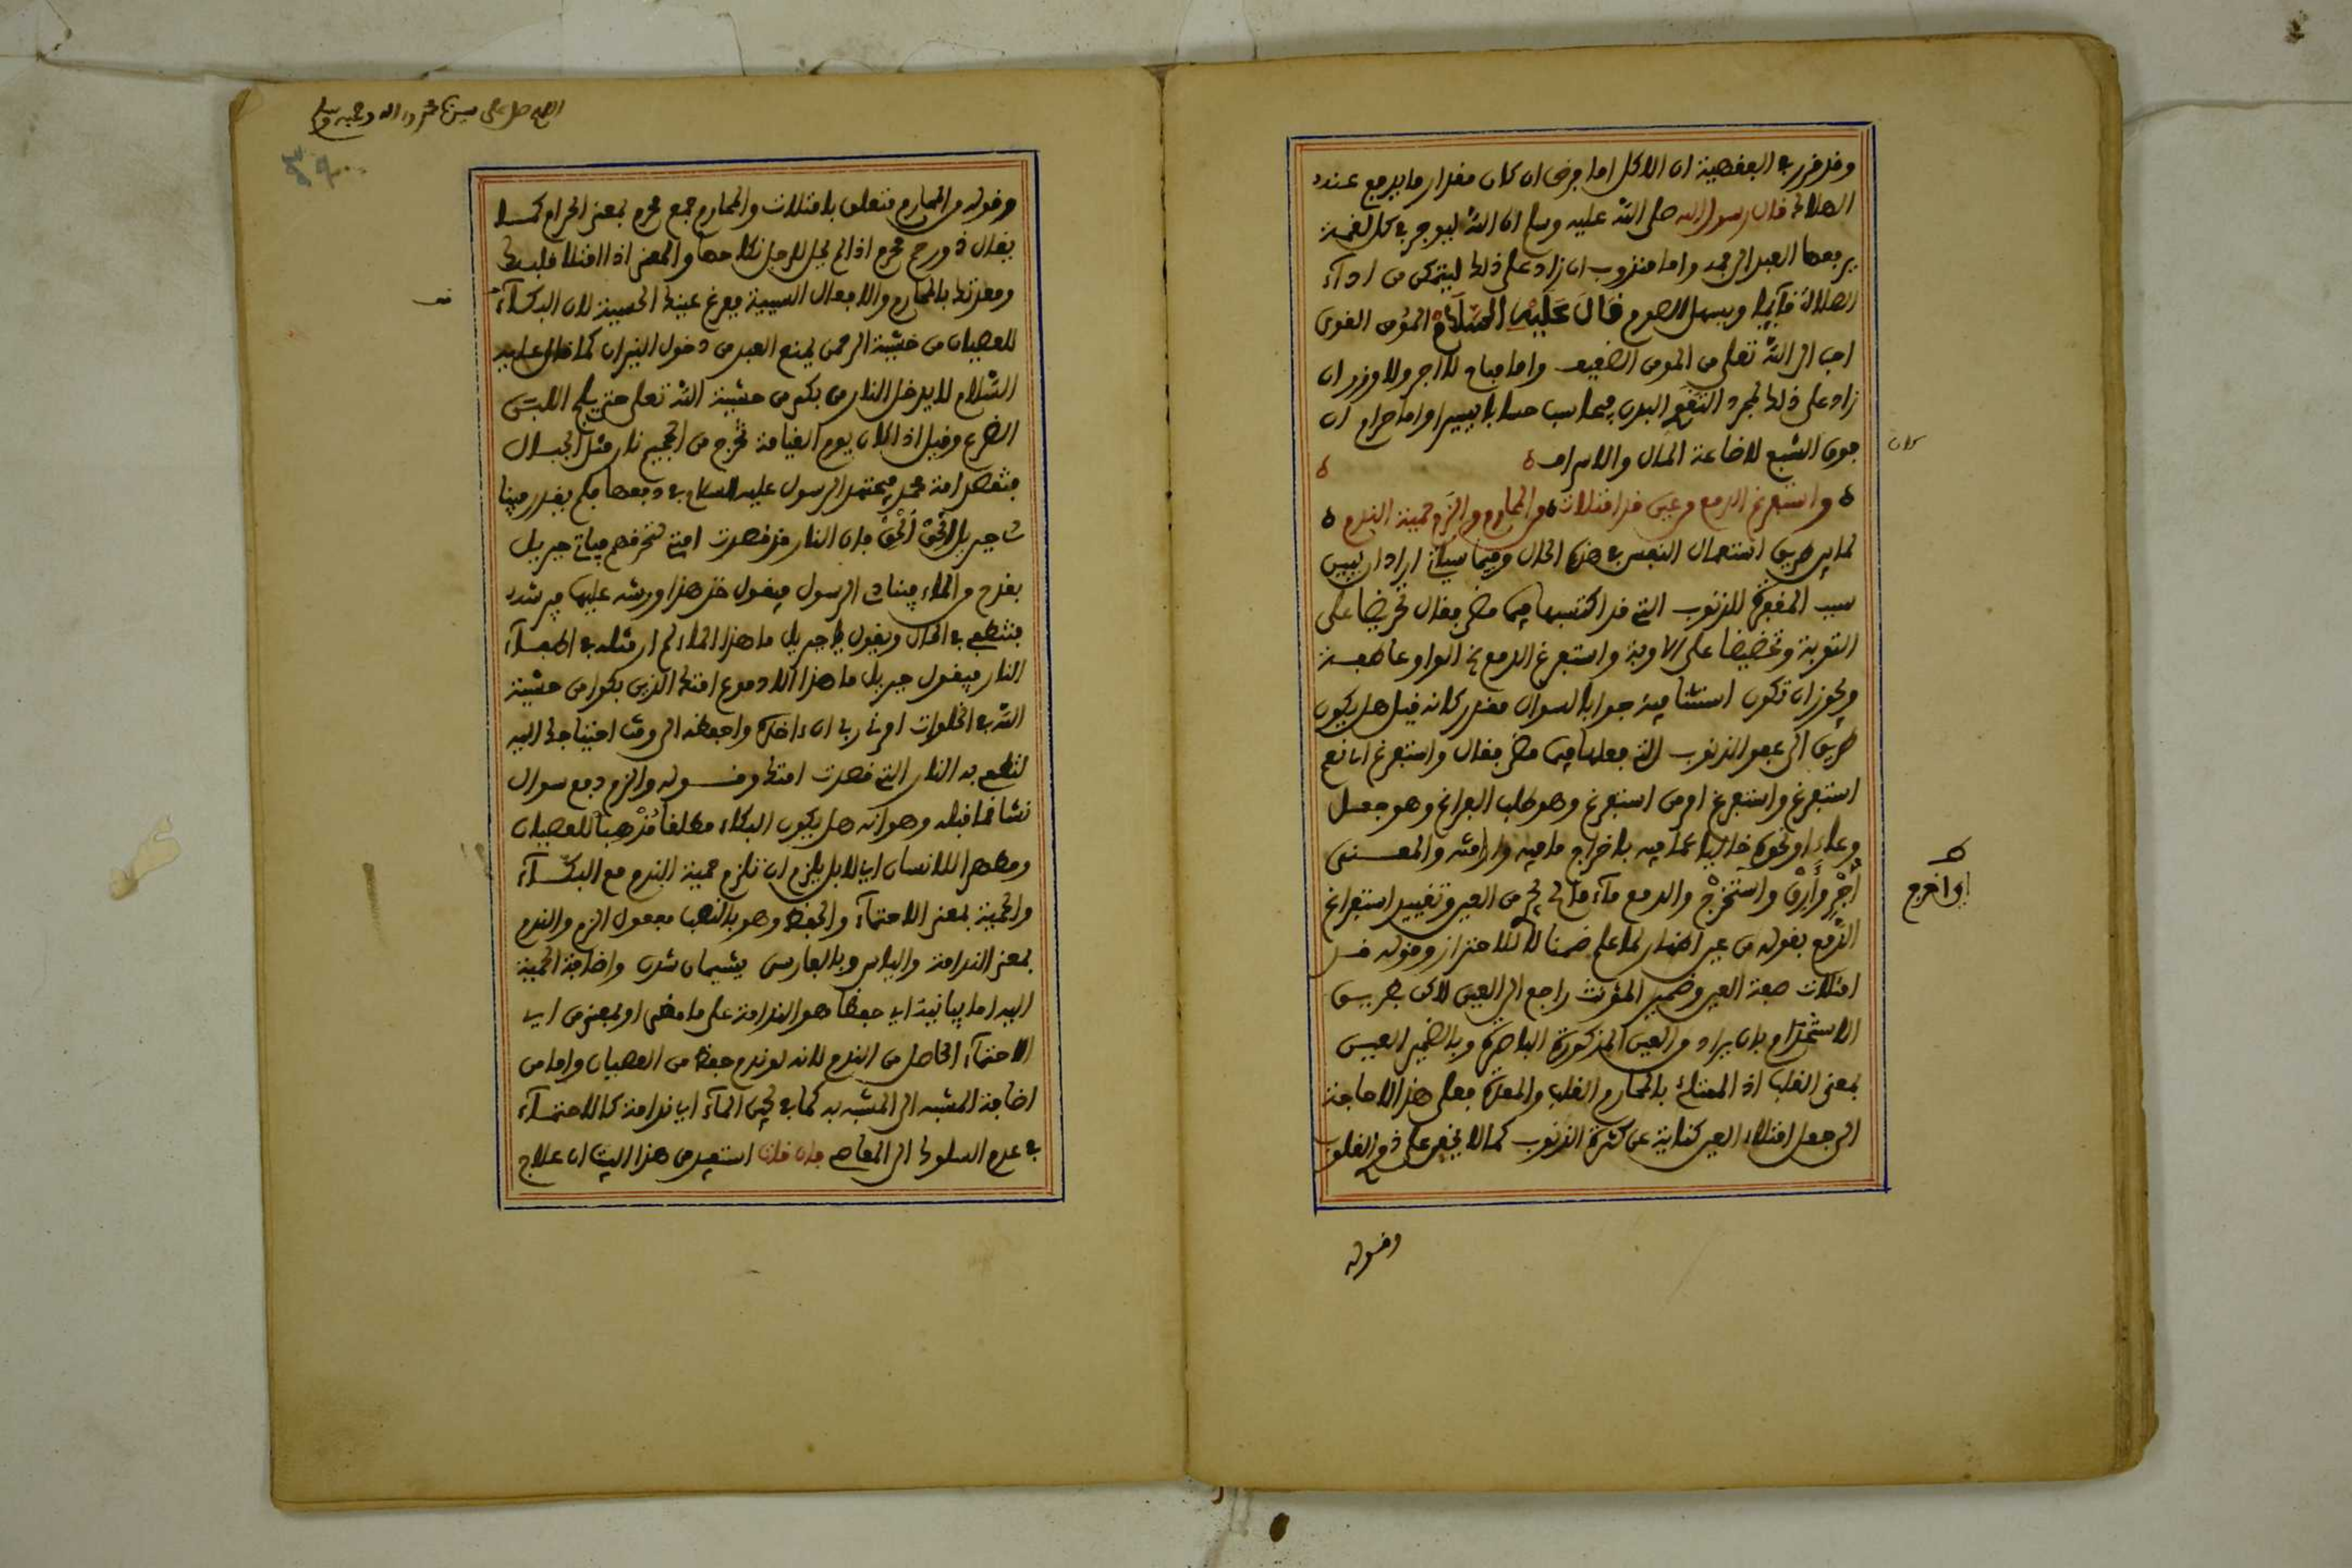 وقد قرر في الفقهية ان الاكل اما فرض ان كان مقدار ما يدفع عنده
الهلاك قال رسول الله صلى الله عليه وسلم ان الله ليوجر في كل لقمة
يرفعها العبد الى فمه واما مندوب ان زاد على ذلك ليتمكن من اداء
الصلاة قائما ويسهل الصوم قَالَ عَلَيْهِ السَّلَامْ المؤمن القوى
احب الى الله تعلى من المومن الضعيف واما مباح لا اجر ولا وزر ان
زاد على ذلك لمجرد التقوى البدن فيحاسب حسابا يسيرا واما حرام ان
كان
فوق الشبع لاضاعة المال والاسراف
واستفرغ الدمع من عين قد امتلات من المحارم والزم حمية الندم
لما بين طريق استعمال النفس في هذه الحال وفيما سياتي اراد ان يبين
سبب المغفرة للذنوب التي قد اكتسبها فيما مضى فقال تحريضا على
التوبة وتحضيضا على الاوبة واستفرغ الدمع الخ الواو عاطفة
ويجوز ان تكون استئنافية جوابا لسوال مقدر كانه قيل هل يكون
طريق الى عفو الذنوب التي فعلها فيما مضى فقال واستفرغ اى نعم
استفرغ واستفرغ امر من استفرغ وهو طلب الفراغ وهو جعل
وعاء او نحوه خاليا عما فيه باخراج ما فيه وارادته والمعنى
اى اخرج
أَجْرِ وَأَرِقْ واستخرج والدمع ماء مالح يجرى من العين وتقييد استفراغ
الدمع بقوله من عين اظهار لما علم ضمنا لا للاحتراز وقوله قد
امتلات صفة العين وضمير المؤنث راجع الى العين لاكن بطريق
الاستخدام بان يراد من العين المذكورة الباصرة وبالضمير العين
بمعنى القلب اذ الممتلئ بالمحارم القلب والمعدة فعلى هذا لا حاجة
الى جعل امتلاء العين كناية عن كثرة الذنوب كما لا يخفى على ذوى القلوب
وقوله
اللهم صل على سيدنا محمد واله وصحبه وسلم
وقوله من المحارم متعلق بامتلات والمحارم جمع محرم بمعنى الحرام كما
يقال ذو رحم محرم اذا لم يحل للرجل نكاحها والمعنى اذا امتلا قلبك
ومعدتك بالمحارم والافعال السيئة ففرغ عينك الحسية لان البكاء
للعصيان من خشية الرحمن يمنع العبد من دخول النيران كما قال عليه
السلام لا يدخل النار من بكى من خشية الله تعلى حتى يلج اللبن
الضرع وقيل اذا كان يوم القيامة تخرج من الجحيم نار مثل الجبال
فتقصد امة محمد فيجتهد الرسول عليه السلام في دفعها فلم يقدر فينادى
يا جبريل اَلْحَقْ اَلْحَقْ فان النار قد قصدت امتي لتحرقهم فياتى جبريل
بقدح من الماء فينادى الرسول فيقول خذ هذا ورشه عليها فيرشه
فتنطفى في الحال ويقول يا جبريل ما هذا الماء لم ار مثله في اطفاء
النار فيقول جبريل ما هذا الا دموع امتك الذين بكوا من خشية
الله في الخلوات امرني ربى ان اخذه واحفظه الى وقت احتياجك اليه
لتطفى به النار التي قصدت امتك وقوله والزم دفع سوال
نشا مما قبله وهو انه هل يكون البكاء مطلقا مُذْهِبا للعصيان
ومطهرا للانسان اى لا بل يلزم ان تلزم حمية الندم مع البكاء
والحمية بمعنى الاحتماء والحفظ وهو بالنصب مفعول الزم والندم
بمعنى الندامة والياس وبالفارسى پشيمان شدن واضافة الحمية
اليه اما بيانية اى حفظا هو الندامة على ما مضى او بمعنى من اى
الاحتماء الحاصل من الندم لانه لو ندم حفظ من العصيان واما من
اضافة المشبه الى المشبه به كما في لجين الماء اى ندامة كالاحتماء
في عدم السلوك الى المعاصى فان قلت استفيد من هذا البيت ان علاج